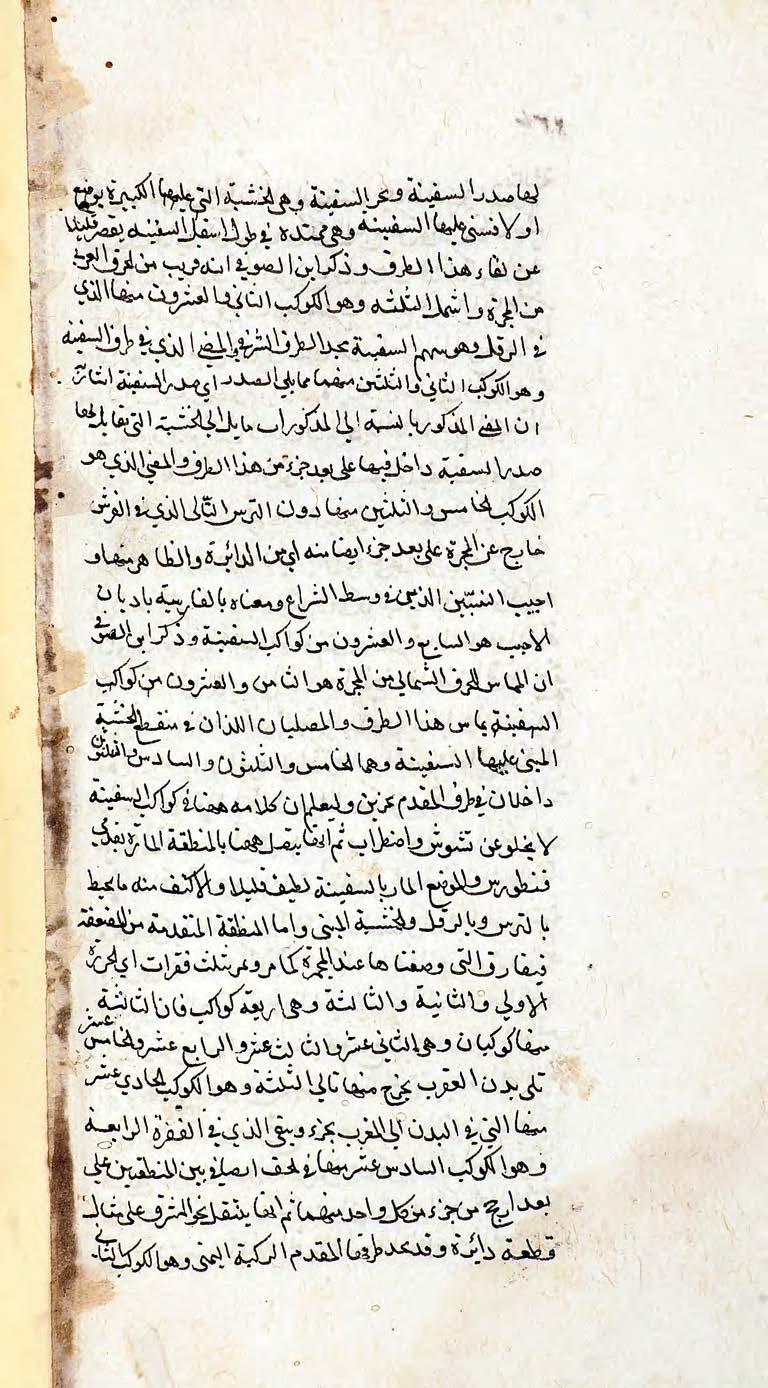 لها صدر السفينة وبحر السفينة وهي الخشبة التي عليها الكبيرة يوضع
اولا فتبنى عليها السفينة وهي ممتدة في طول اسفل السفينة يقصر قليلا
عن لقاء هذا الطرف وذكر ابن الصوفي انه قريب من الحرف الغربي
من المجرة واشمل الثلثة وهو الكوكب الثاني والعشرون منها الذي
في الدقل وهو سهم السفينة يحد الطرف الشرقي والمضي الذي في طرف السفينة
وهو الكوكب الثاني والثلثين منها مما يلي الصدر اي صدر السفينة
ان المضي المذكور بالنسبة الى المذكورات مايل الى الخشبة التي يقابل لها
صدر السفينة داخل فيها على بعد جزء من هذا الطرف والمضي الذي هو
الكوكب الخامس والثلثين منها دون الترس التالي الذي في الفرش
خارج عن المجرة على بعد جزء ايضا منه اي من الدائرة والظاهر منها و
اجيب النيرين الذين في وسط الشراع ومعناه بالفارسية بادبان
الاجيب هو السابع والعشرون من كواكب السفينة وذكر ابن الصوفي
ان المماس للحرف الشمالي من المجرة هو الثامن والعشرون من كواكب
السفينة يماس هذا الطرف والمصليان اللذان في منقطع الخشبة
المبني عليها السفينة وهما الخامس والثلثون والسادس والثلثون
داخلان في طرف المقدم بجزئين وليعلم ان كلامه ههنا في كواكب السفينة
لا يخلو عن تشوش واضطراب ثم انها يتصل ههنا بالمنطقة المارة بقدمي
قنطورس والموضع المار بالسفينة لطيف قليلا والاكثف منه ما يحيط
بالترس وبالدقل والخشبة المبنى واما المنطقة المتقدمة من المضعفة
فيفارق التي وصفنا ها عند المجمرة كما مر ويمر بثلث فقرات اي الحرزة
الاولى والثانية والثالثة وهي اربعة كواكب فان الثالثة
منها كوكبان وهي الثاني عشر والثالث عشر والرابع عشر والخامس عشر
تلي بدن العقرب يخرج منها تالي الثلثة وهو الكوكب الحادي عشر
منها التي في البدن الى المغرب بجزء ويبقى الذي في الفقرة الرابعة
وهو الكوكب السادس عشر منها في بين المنطقتين على
بعد ارجح من جزء من كل واحد منهما ثم انها ينتقل نحو المشرق على مثال
قطعة دائرة وقد يحد طرفها المقدم الركبة اليمنى وهو الكوكب الثاني